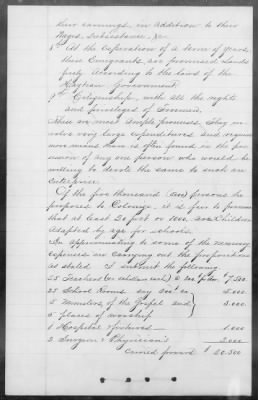 their earnings, in addition to their
Wages, Subsistence, &c.
8th At the Expiration of a term of years
these Emigrants are promised lands
freely according to the laws of the
Haytien Government.
9th Citizenship, with all the rights
and privileges of
These are most ample promises. They in-
volve very large expenditures and require
more means than is often found in the pos-
session of any one person who would be
willing to devote the same to such an
Enterprise.
Of the five thousand (5000) persons he
proposes to Colonize, it is fair to presume
that at least 20 pct or 1000, are Children
adapted by age for schools.
In approximating to some of the necessary
expenses in carrying out the propositions
as stated. I submit the following
25 Teachers (40 children each) @ 300 per Ann $7.500
25 School Rooms say 200 ea 5.000
5 Ministers of the Gospel and 3.000
5 places of worship
1 Hospital & fixtures 1.000
2 Surgeon & Physicians 3.000
Carried forward $20.500